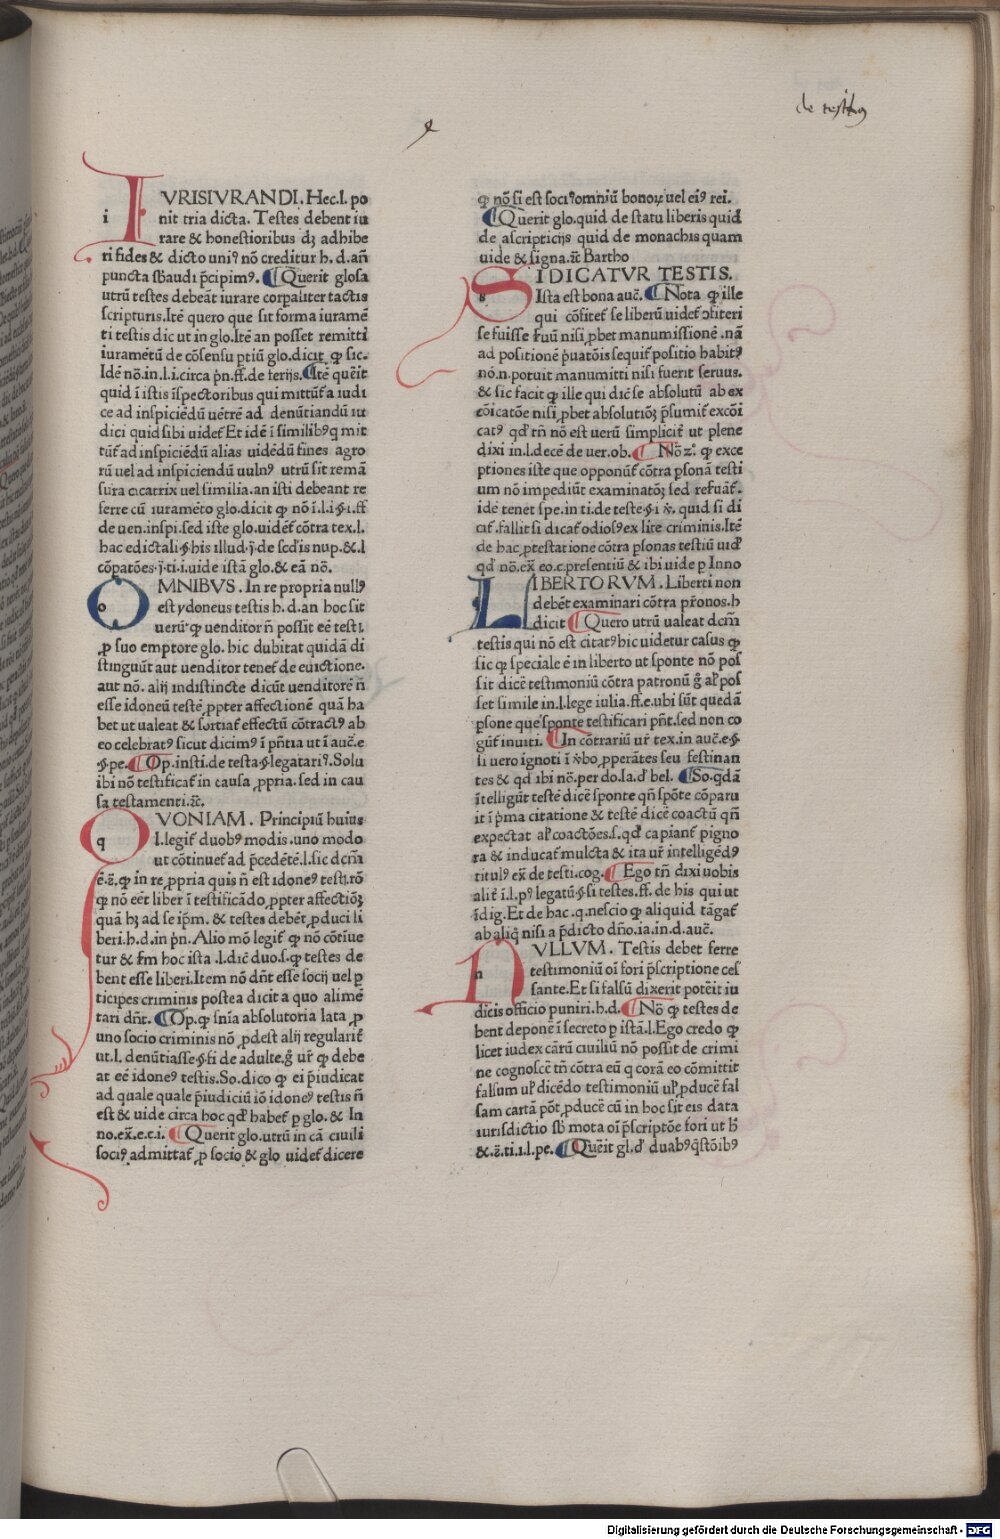 de testibꝰ
IVRISIVRANDI. Hec.l. po
nit tria dicta. Testes debent iu
rare & honestioribus dꝫ adhibe
ri fides & dicto uniꝰ nō creditur h. d. añ
puncta s̄baudi p̄cipimꝰ. Querit glosa
utrū testes debeāt iurare corpaliter tactis
scripturis. Itē quero que sit forma iuramē
ti testis dic ut in glo. Itē an posset remitti
iuramētū de cōsensu ptiū glo. dicit ꝙ sic.
Idē nō.in.l.i.circa pn̄.ff.de ferijs. Itē quēit
quid ī istis īspectoribus qui mittūt̄ a iudi
ce ad inspiciēdū uētrē ad denūtiandū iu
dici quid sibi uidet̄ Et idē ī similibꝰ q mit
tūt̄ ad inspiciēdū alias uidēdū fines agro
rū uel ad inspiciendū uulnꝰ utrū sit remā
sura cicatrix uel similia. an isti debeant re
ferre cū iuramēto glo. dicit ꝙ nō ī.l.i.§.i.ff
de uen.inspi. sed iste glo. uidet̄ cōtra tex.l.
hac edictali.§.his illud.j̄.de secd̄is nup.&.l
cōpatōes.j̄.ti.i.uide istā glo. & eā nō.
OMNIBVS. In re propria nullꝰ
est ydoneus testis h. d. an hoc sit
uerū ꝙ uenditor n̄ possit eē testi.
ꝓ suo emptore glo. hic dubitat quidā di
stinguūt aut uenditor tenet̄ de euictione.
aut nō. alij indistincte dicūt uenditorē n̄
esse idoneū testē ꝓpter affectionē quā ha
bet ut ualeat & sortiat̄ effectū cōtractꝰ ab
eo celebratꝰ sicut dicimꝰ ī pn̄tia ut ī auc̄.e
.§.pe. Op.insti.de testa.§.legatariꝰ. Solu
ibi nō testificat̄ in causa ꝓpria. sed in cau
sa testamenti. ꝛc̄.
QVONIAM. Principiū huius
l.legit̄ duobꝰ modis. uno modo
ut cōtinuet̄ ad p̄cedētē.l. sic dcm̄
ē.s̄. ꝙ in re ꝓpria quis n̄ est idoneꝰ testi. rō
ꝙ nō eēt liber ī testificādo ꝓpter affectiōꝫ
quā hꝫ ad se ip̄m. & testes debēt ꝓduci li
beri. h. d. in pn̄. Alio mō legit̄ ꝙ nō cōtīue
tur & s̄m hoc ista.l.dic̄ duo. s. ꝙ testes de
bent esse liberi. Item nō dn̄t esse socij uel p
ticipes criminis postea dicit a quo alimē
tari dn̄t. Op. ꝙ sn̄ia absolutoria lata ꝓ
uno socio criminis nō ꝓdest alij regularit̄
ut.l. denūtiasse.§.si de adulte. ḡ ur̄ ꝙ debe
at eē idoneꝰ testis. So. dico ꝙ ei p̄iudicat
ad quale quale p̄iudiciū iō idoneꝰ testis n̄
est & uide circa hoc qd̄ habet̄ p glo. & In
no.ex̄.e.c.i. Querit glo. utrū in cā ciuili
sociꝰ admittat̄ ꝓ socio & glo uidet̄ dicere
ꝙ nō si est sociꝰ omniū bonoꝝ uel eiꝰ rei.
Querit glo. quid de statu liberis quid
de ascripticijs quid de monachis quam
uide & signa. ꝛc̄ Bartho
SI DICATVR TESTIS.
Ista est bona auc̄. Nota ꝙ ille
qui cōfitet̄ se liberū uidet̄ ↄfiteri
se fuisse s̄uū nisi ꝓbet manumissionē. nā
ad positionē p̄uatōis sequit̄ positio habitꝰ
nō.n. potuit manumitti nisi fuerit seruus.
& sic facit ꝙ ille qui dic̄ se absolutū ab ex
cōicatōe nisi ꝓbet absolutiōꝫ p̄sumit̄ excōi
catꝰ qd̄ tn̄ nō est uerū simplicit̄ ut plene
dixi in.l. decē de uer.ob. Nō 2ͦ. ꝙ exce
ptiones iste que opponūt̄ cōtra psonā testi
um nō impediūt examinatōꝫ sed reſuāt̄.
idē tenet spe. in ti. de teste.§.i v̄. quid si di
cit̄. fallit si dicat̄ odiosꝰ ex lite criminis. Itē
de hac ꝓtestatione cōtra psonas testiū uid̄
qd̄ nō.ex̄ eo.c. presentiū & ibi uide p Inno
LIBERTORVM. Liberti non
debēt examinari cōtra pr̄onos. h
dicit Quero utrū ualeat dcm̄
testis qui nō est citatꝰ hic uidetur casus ꝙ
sic ꝙ speciale ē in liberto ut sponte nō pos
sit dicē testimoniū cōtra patronū ḡ al̄ pos
set simile in.l. lege iulia.ff.e. ubi sūt quedā
psone que sponte testificari pn̄t. sed non co
gūt̄ inuiti. In cōtrariū ur̄ tex. in auc̄.e.§.
si uero ignoti ī v̄bo. ꝓperātes seu festinan
tes & qd̄ ibi nō. per do. Ia. d̄ bel. So. qd̄ā
ītelligūt testē dicē sponte qn̄ spōte cōparu
it ī p̄ma citatione & testē dicē coactū qn̄
expectat al̄ coactōes. s. qd̄ capiant̄ pigno
ra & inducat̄ mulcta & ita ur̄ intelligēdꝰ
titulꝰ ex̄ de testi.cog. Ego tn̄ dixi uobis
alit̄ ī.l.pꝰ legatū.§.si testes.ff. de his qui ut
īdig. Et de hac .q. nescio ꝙ aliquid tāgat̄
ab aliq̄ nisi a p̄dicto dn̄o. ia. in. d. auc̄.
NVLLVM. Testis debet ferre
testimoniū oī fori p̄scriptione ces
sante. Et si falsū dixerit potēit iu
dicis officio puniri. h. d. Nō ꝙ testes de
bent deponē ī secreto p istā.l. Ego credo ꝙ
licet iudex cārū ciuiliū nō possit de crimi
ne cognoscē tn̄ cōtra eū q corā eo cōmittit
falsum ul̄ dicēdo testimoniū ul̄ ꝓducē fal
sam cartā pōt ꝓducē cū in hoc sit eis data
iurisdictio sb̄ mota oī p̄scriptōe fori ut h̄
&.s̄.ti.i.l.pe. Quēit gl. d̄ duabꝰ q̄stōibꝰ
Digitalisierung gefördert durch die Deutsche Forschungsgemeinschaft - DFG